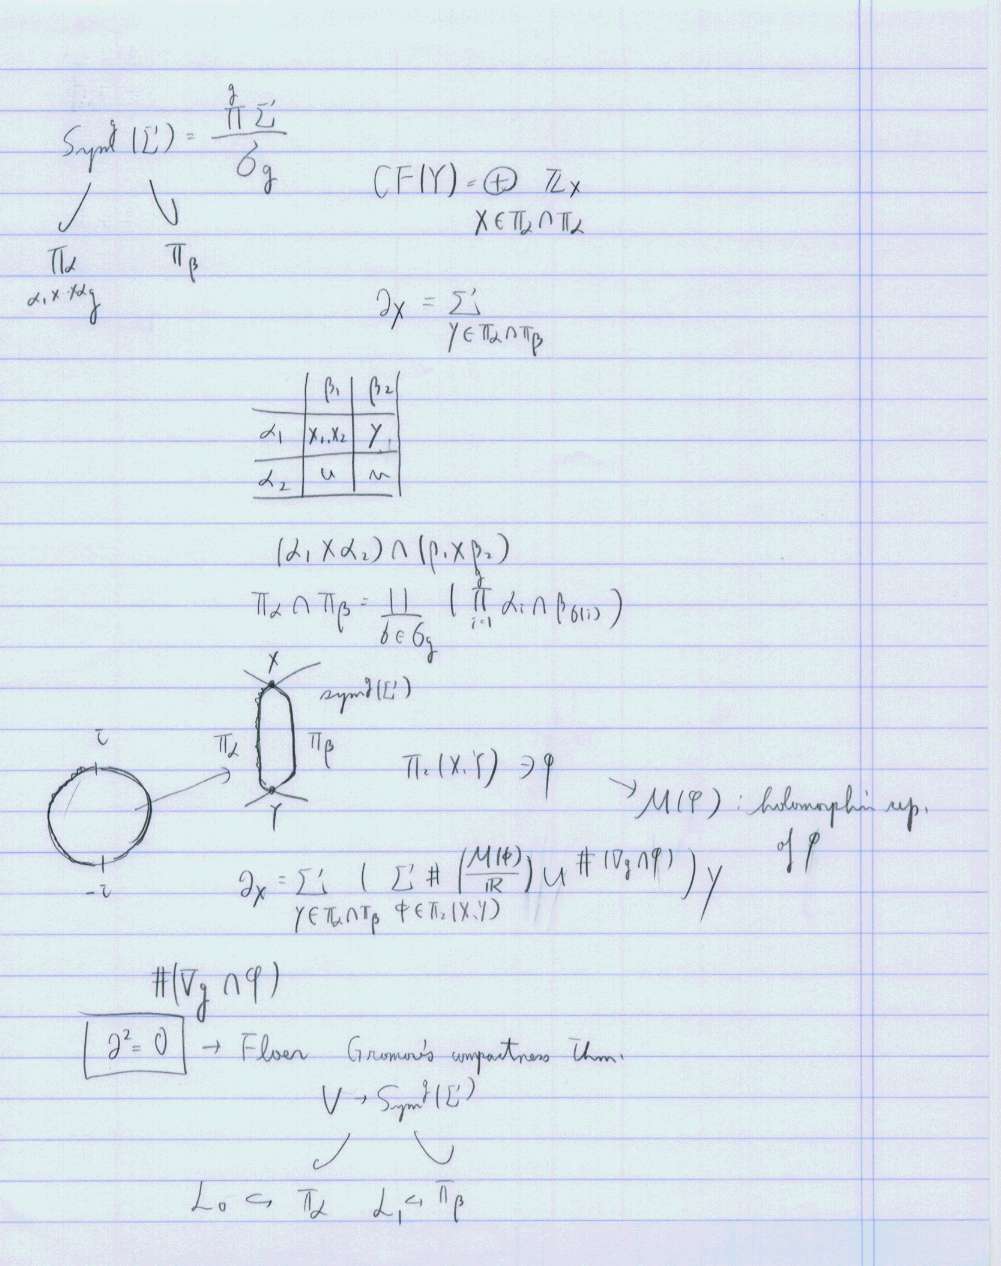 Sym^g(Σ) = ∏^g Σ / σ_g
CF(Y) = ⊕ ℤ_x
x ∈ 𝕋_α ∩ 𝕋_α
𝕋_α 𝕋_β
α_1 × ·· × α_g
∂x = Σ
y ∈ 𝕋_α ∩ 𝕋_β
β_1 β_2
α_1 x_1, x_2 y
α_2 u v
(α_1 × α_2) ∩ (β_1 × β_2)
𝕋_α ∩ 𝕋_β = ∐_{σ ∈ σ_g} ( ∏_{i=1}^g α_i ∩ β_{σ(i)} )
x
Sym^g(Σ)
i 𝕋_α 𝕋_β π_2(x, y) ∋ φ
y → M(φ) : holomorphic rep.
of φ
-i
∂x = Σ_{y ∈ 𝕋_α ∩ 𝕋_β} ( Σ_{φ ∈ π_2(x, y)} # (M(φ)/ℝ) U^{#(∇_g ∩ φ)} ) y
#(∇_g ∩ φ)
∂² = 0 → Floer Gromov's compactness Thm.
V → Sym^g(Σ)
L_0 ↪ 𝕋_α L_1 ↪ 𝕋_β